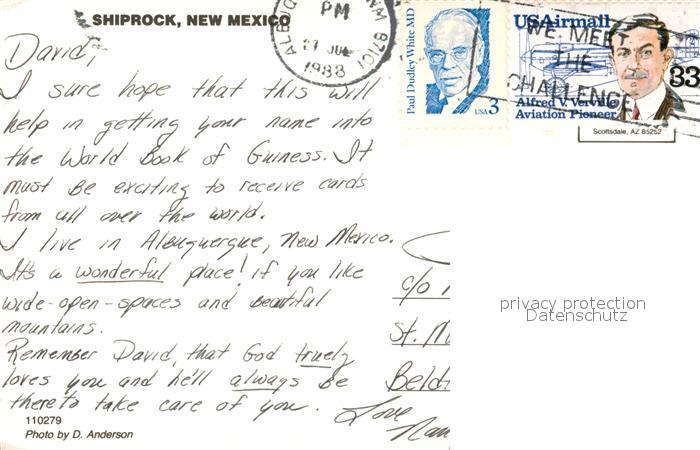 SHIPROCK, NEW MEXICO
ALBUQ NM 87101
PM
21 JUL
1988
Paul Dudley White MD
USA 3
USAirmail
33
WE MEET
THE
CHALLENGE
Alfred V. Verville
Aviation Pioneer
Scottsdale, AZ 85252
David,
I sure hope that this will
help in getting your name into
the World Book of Guiness. It
must be exciting to receive cards
from all over the world.
I live in Albuquerque, New Mexico.
It's a wonderful place! if you like
wide-open-spaces and beautiful
mountains.
Remember David, that God truely
loves you and he'll always be
there to take care of you.
Love
Nan
c/o
St. M
Beld
privacy protection
Datenschutz
110279
Photo by D. Anderson